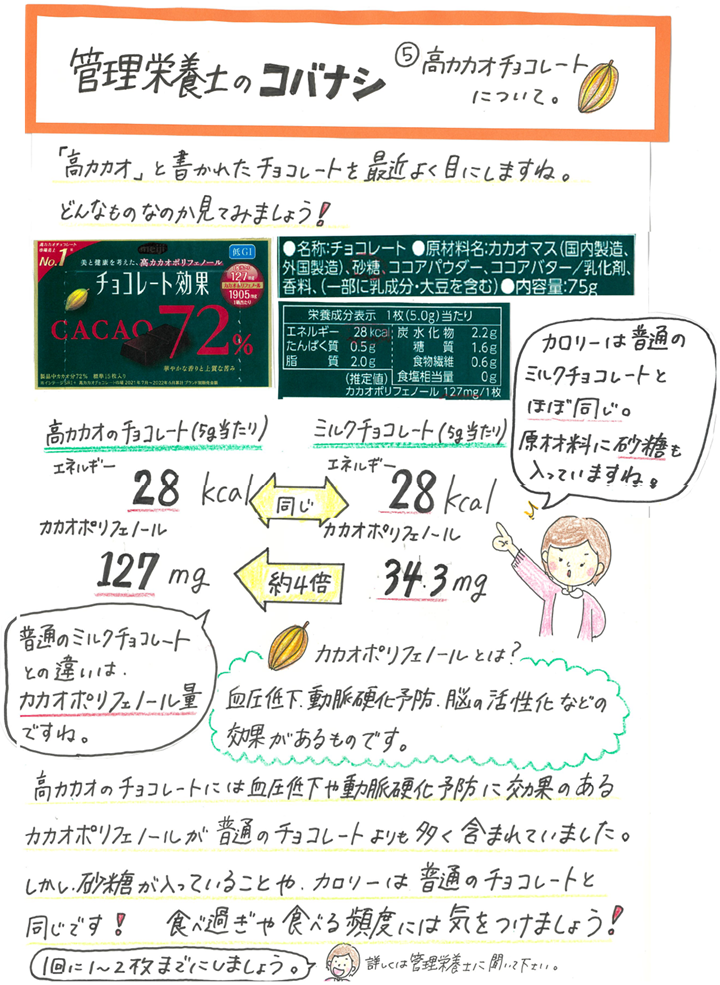 管理栄養士のコバナシ
⑤高カカオチョコレート
について。
「高カカオ」と書かれたチョコレートを最近よく目にしますね。
どんなものなのか見てみましょう!
No.1
meiji
低GI
美と健康を考えた、高カカオポリフェノール
チョコレート効果
127mg
1905mg
CACAO 72%
華やかな香りと上質な苦み
●名称:チョコレート ●原材料名:カカオマス(国内製造、
外国製造)、砂糖、ココアパウダー、ココアバター/乳化剤、
香料、(一部に乳成分・大豆を含む)●内容量:75g
栄養成分表示 1枚(5.0g)当たり
エネルギー 28kcal 炭水化物 2.2g
たんぱく質 0.5g 糖質 1.6g
脂質 2.0g 食物繊維 0.6g
(推定値) 食塩相当量 0g
カカオポリフェノール 127mg/1枚
カロリーは普通の
ミルクチョコレートと
ほぼ同じ。
原材料に砂糖も
入っていますね。
高カカオのチョコレート(5g当たり)
ミルクチョコレート(5g当たり)
エネルギー
28 kcal
同じ
エネルギー
28 kcal
カカオポリフェノール
127 mg
約4倍
カカオポリフェノール
34.3 mg
普通のミルクチョコレート
との違いは、
カカオポリフェノール量
ですね。
カカオポリフェノールとは?
血圧低下、動脈硬化予防、脳の活性化などの
効果があるものです。
高カカオのチョコレートには血圧低下や動脈硬化予防に効果のある
カカオポリフェノールが普通のチョコレートよりも多く含まれていました。
しかし、砂糖が入っていることや、カロリーは普通のチョコレートと
同じです! 食べ過ぎや食べる頻度には気をつけましょう!
1回に1~2枚までにしましょう。
詳しくは管理栄養士に聞いて下さい。